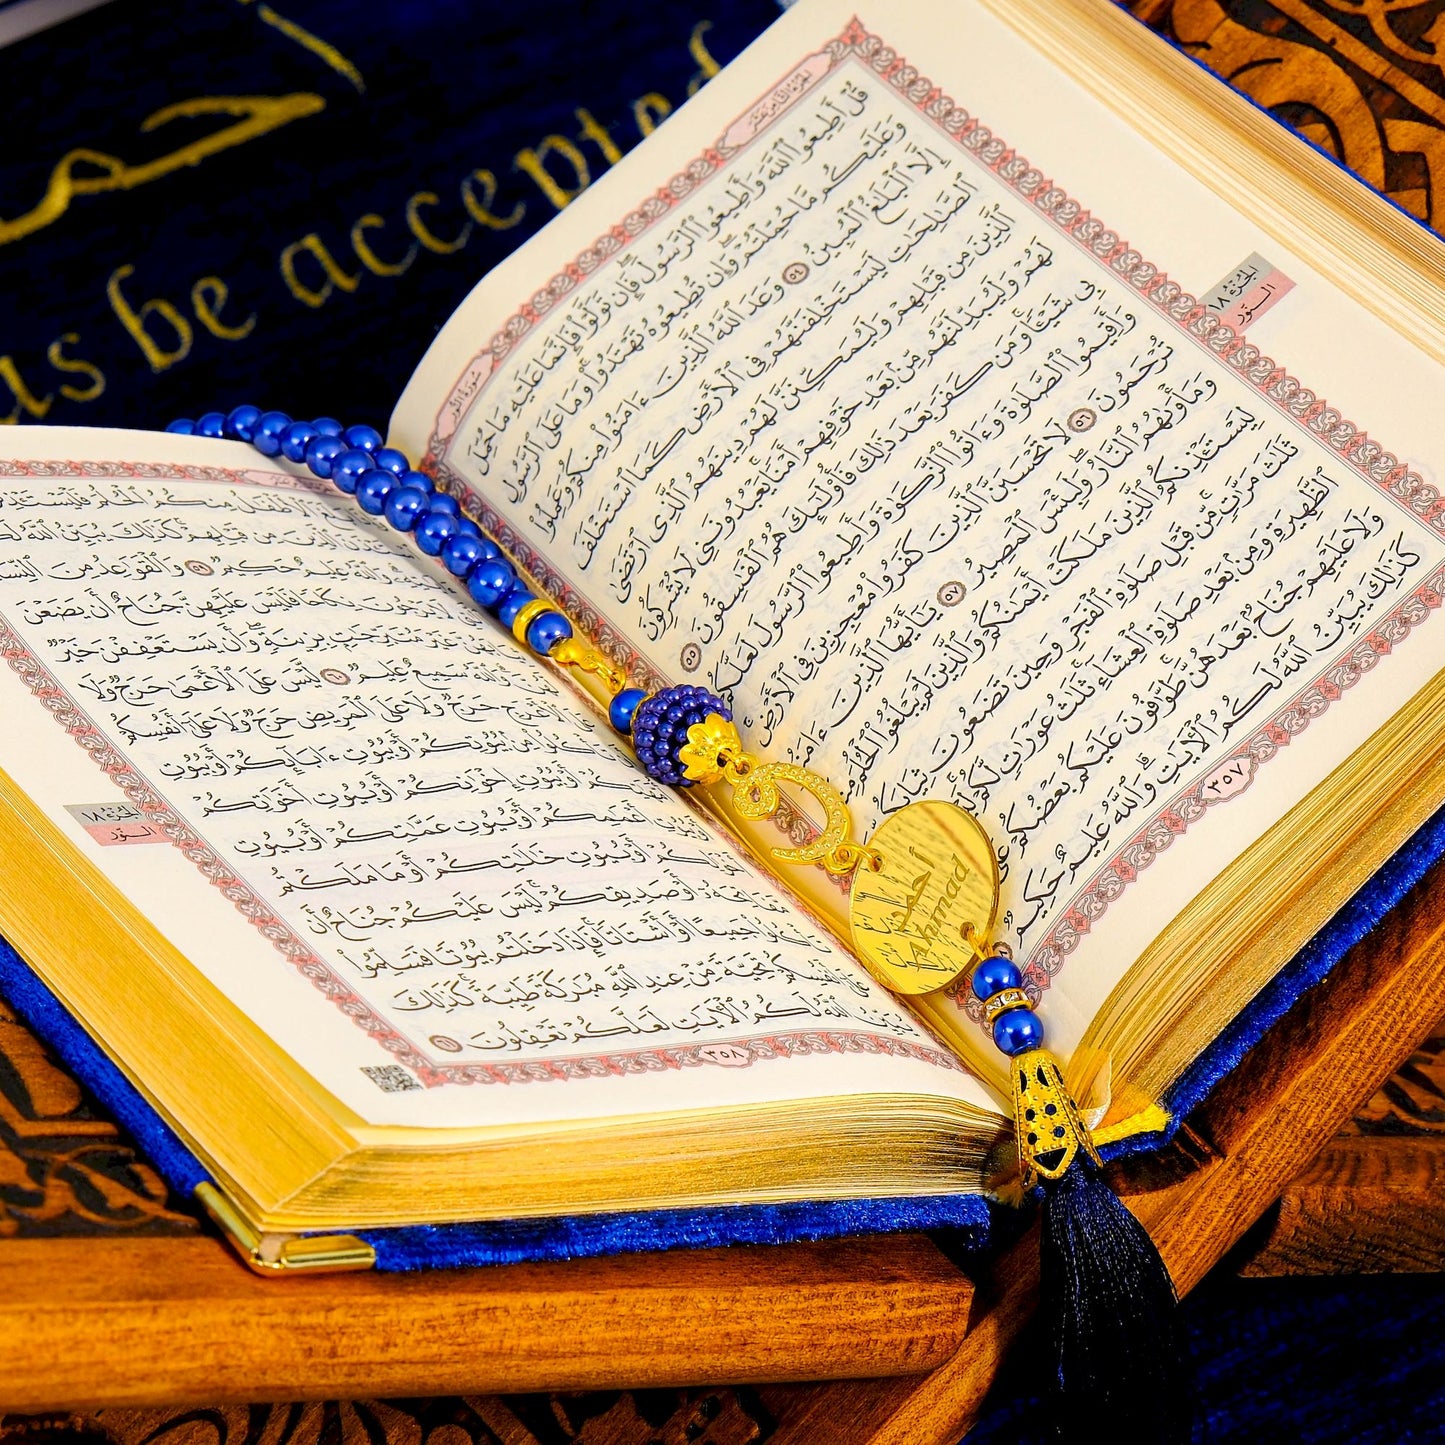 أحمد
us be accepted
الجزء الثامن عشر
سورة النور
قُلْ أَطِيعُوا۟ ٱللَّهَ وَأَطِيعُوا۟ ٱلرَّسُولَ ۖ فَإِن تَوَلَّوْا۟ فَإِنَّمَا عَلَيْهِ مَا حُمِّلَ
وَعَلَيْكُم مَّا حُمِّلْتُمْ ۖ وَإِن تُطِيعُوهُ تَهْتَدُوا۟ ۚ وَمَا عَلَى ٱلرَّسُولِ
إِلَّا ٱلْبَلَٰغُ ٱلْمُبِينُ ٥٤ وَعَدَ ٱللَّهُ ٱلَّذِينَ ءَامَنُوا۟ مِنكُمْ وَعَمِلُوا۟
ٱلصَّٰلِحَٰتِ لَيَسْتَخْلِفَنَّهُمْ فِى ٱلْأَرْضِ كَمَا ٱسْتَخْلَفَ
ٱلَّذِينَ مِن قَبْلِهِمْ وَلَيُمَكِّنَنَّ لَهُمْ دِينَهُمُ ٱلَّذِى ٱرْتَضَىٰ
لَهُمْ وَلَيُبَدِّلَنَّهُم مِّنۢ بَعْدِ خَوْفِهِمْ أَمْنًا ۚ يَعْبُدُونَنِى لَا يُشْرِكُونَ
بِى شَيْـًٔا ۚ وَمَن كَفَرَ بَعْدَ ذَٰلِكَ فَأُو۟لَٰٓئِكَ هُمُ ٱلْفَٰسِقُونَ ٥٥
وَأَقِيمُوا۟ ٱلصَّلَوٰةَ وَءَاتُوا۟ ٱلزَّكَوٰةَ وَأَطِيعُوا۟ ٱلرَّسُولَ لَعَلَّكُمْ
تُرْحَمُونَ ٥٦ لَا تَحْسَبَنَّ ٱلَّذِينَ كَفَرُوا۟ مُعْجِزِينَ فِى ٱلْأَرْضِ ۚ
وَمَأْوَىٰهُمُ ٱلنَّارُ ۖ وَلَبِئْسَ ٱلْمَصِيرُ ٥٧ يَٰٓأَيُّهَا ٱلَّذِينَ ءَامَنُوا۟
لِيَسْتَـْٔذِنكُمُ ٱلَّذِينَ مَلَكَتْ أَيْمَٰنُكُمْ وَٱلَّذِينَ لَمْ يَبْلُغُوا۟ ٱلْحُلُمَ
ثَلَٰثَ مَرَّٰتٍ ۚ مِّن قَبْلِ صَلَوٰةِ ٱلْفَجْرِ وَحِينَ تَضَعُونَ ثِيَابَكُم
ٱلظَّهِيرَةِ وَمِنۢ بَعْدِ صَلَوٰةِ ٱلْعِشَآءِ ۚ ثَلَٰثُ عَوْرَٰتٍ لَّكُمْ
وَلَا عَلَيْهِمْ جُنَاحٌۢ بَعْدَهُنَّ ۚ طَوَّٰفُونَ عَلَيْكُم بَعْضُكُمْ
كَذَٰلِكَ يُبَيِّنُ ٱللَّهُ لَكُمُ ٱلْـَٔايَٰتِ ۗ وَٱللَّهُ عَلِيمٌ حَكِيمٌ
٣٥٧
الجزء ١٨
النور
ٱلْأَطْفَٰلُ مِنكُمُ ٱلْحُلُمَ
ٱلَّذِينَ مِن قَبْلِهِمْ ۚ كَذَٰلِكَ يُبَيِّنُ ٱللَّهُ
وَٱللَّهُ عَلِيمٌ حَكِيمٌ ٥٩ وَٱلْقَوَٰعِدُ مِنَ
يَرْجُونَ نِكَاحًا فَلَيْسَ عَلَيْهِنَّ جُنَاحٌ أَن يَضَعْنَ
غَيْرَ مُتَبَرِّجَٰتٍۭ بِزِينَةٍ ۖ وَأَن يَسْتَعْفِفْنَ خَيْرٌ
وَٱللَّهُ سَمِيعٌ عَلِيمٌ ٦٠ لَّيْسَ عَلَى ٱلْأَعْمَىٰ حَرَجٌ وَلَا
ٱلْأَعْرَجِ حَرَجٌ وَلَا عَلَى ٱلْمَرِيضِ حَرَجٌ وَلَا عَلَىٰٓ أَنفُسِكُمْ
تَأْكُلُوا۟ مِنۢ بُيُوتِكُمْ أَوْ بُيُوتِ ءَابَآئِكُمْ أَوْ بُيُوتِ
أَوْ بُيُوتِ إِخْوَٰنِكُمْ أَوْ بُيُوتِ أَخَوَٰتِكُمْ
أَعْمَٰمِكُمْ أَوْ بُيُوتِ عَمَّٰتِكُمْ أَوْ بُيُوتِ
أَوْ بُيُوتِ خَٰلَٰتِكُمْ أَوْ مَا مَلَكْتُم
مَّفَاتِحَهُۥٓ أَوْ صَدِيقِكُمْ ۚ لَيْسَ عَلَيْكُمْ جُنَاحٌ أَن
تَأْكُلُوا۟ جَمِيعًا أَوْ أَشْتَاتًا ۚ فَإِذَا دَخَلْتُم بُيُوتًا فَسَلِّمُوا۟
عَلَىٰٓ أَنفُسِكُمْ تَحِيَّةً مِّنْ عِندِ ٱللَّهِ مُبَٰرَكَةً طَيِّبَةً ۚ كَذَٰلِكَ
يُبَيِّنُ ٱللَّهُ لَكُمُ ٱلْـَٔايَٰتِ لَعَلَّكُمْ تَعْقِلُونَ ٦١
٣٥٨
الجزء ١٨
النور
أحمد
Ahmad